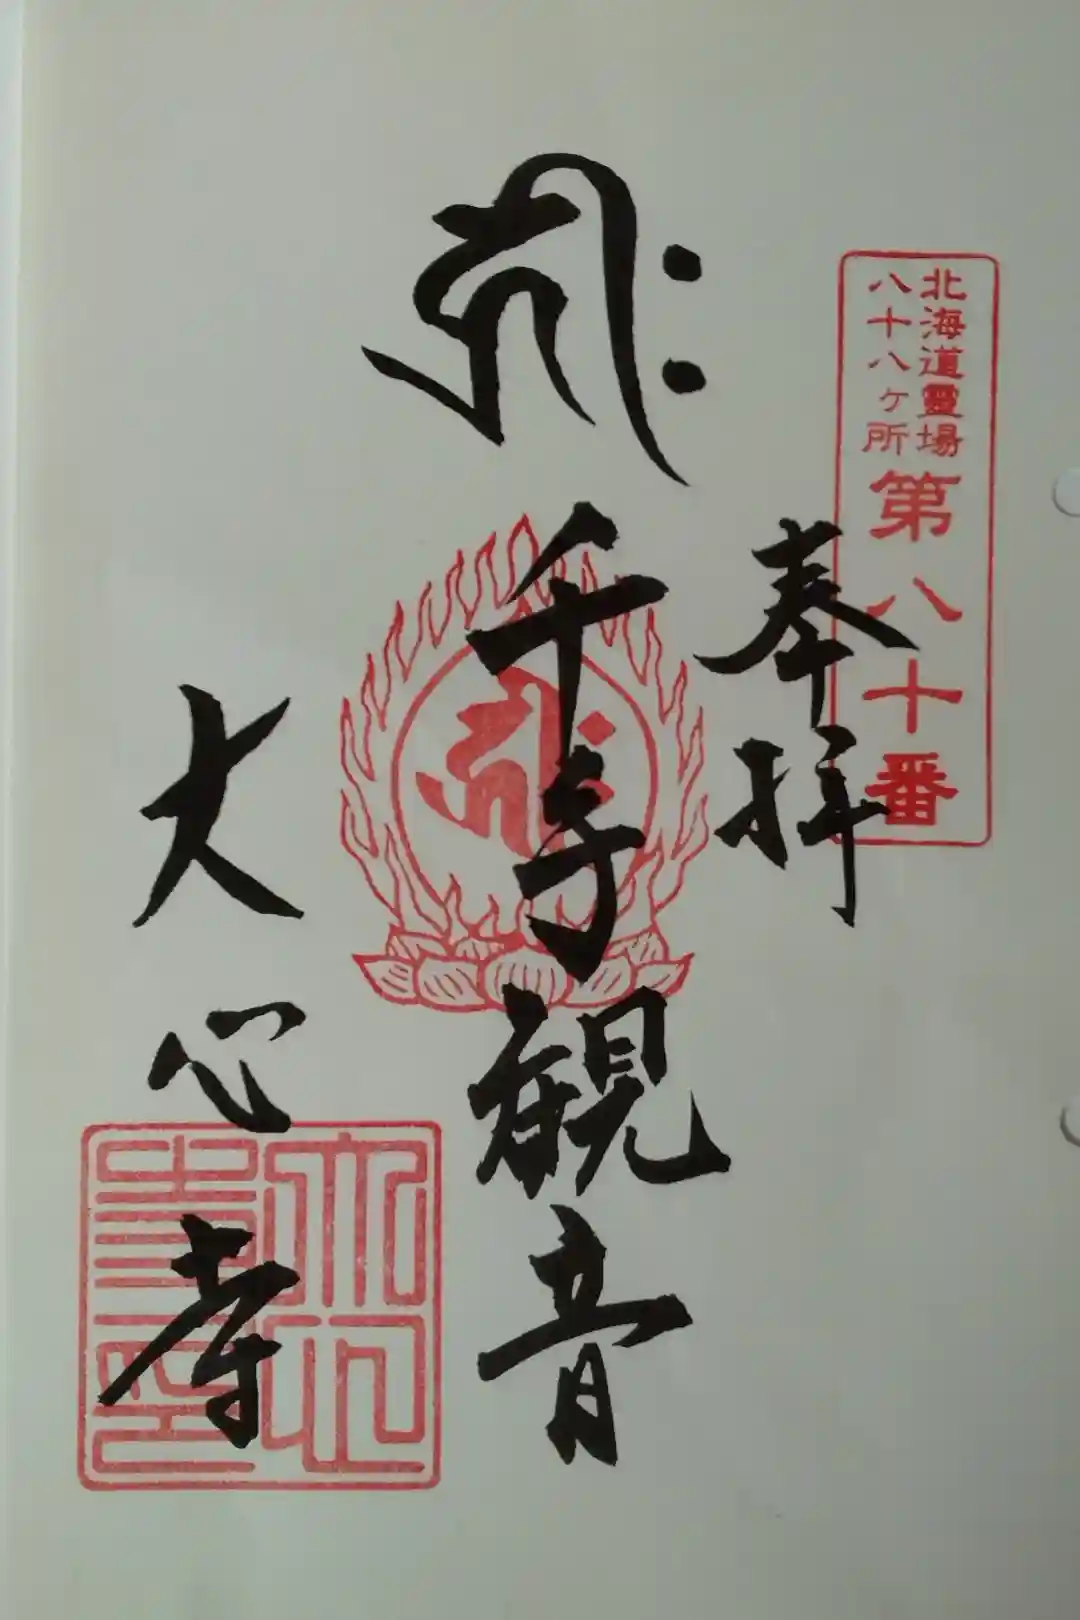 北海道靈場
八十八ヶ所
第八十番
奉拝
千手観音
大心寺